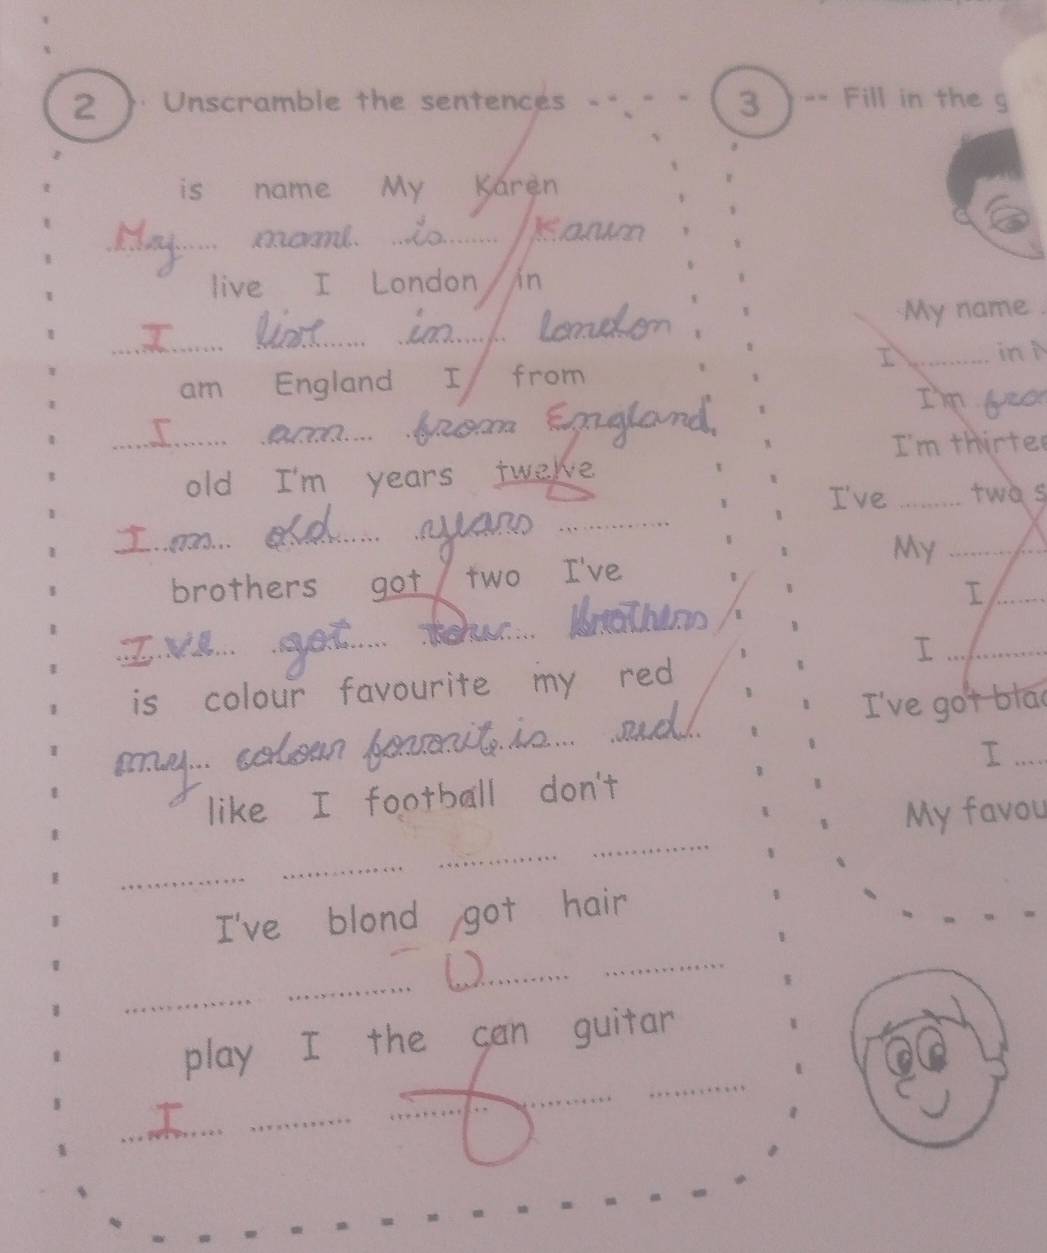 2 Unscramble the sentences
is name My Karen
My name is Karen
live I London in
I live in London
am England I from
I am from England.
old I'm years twelve
I m old years
brothers got two I've
I ve got brothers
is colour favourite my red
my colour is red
like I football don't
I've blond got hair
play I the can guitar
I
3 Fill in the
My name
I in
I'm
I'm
I've two
My
I
I
I've got
I
My